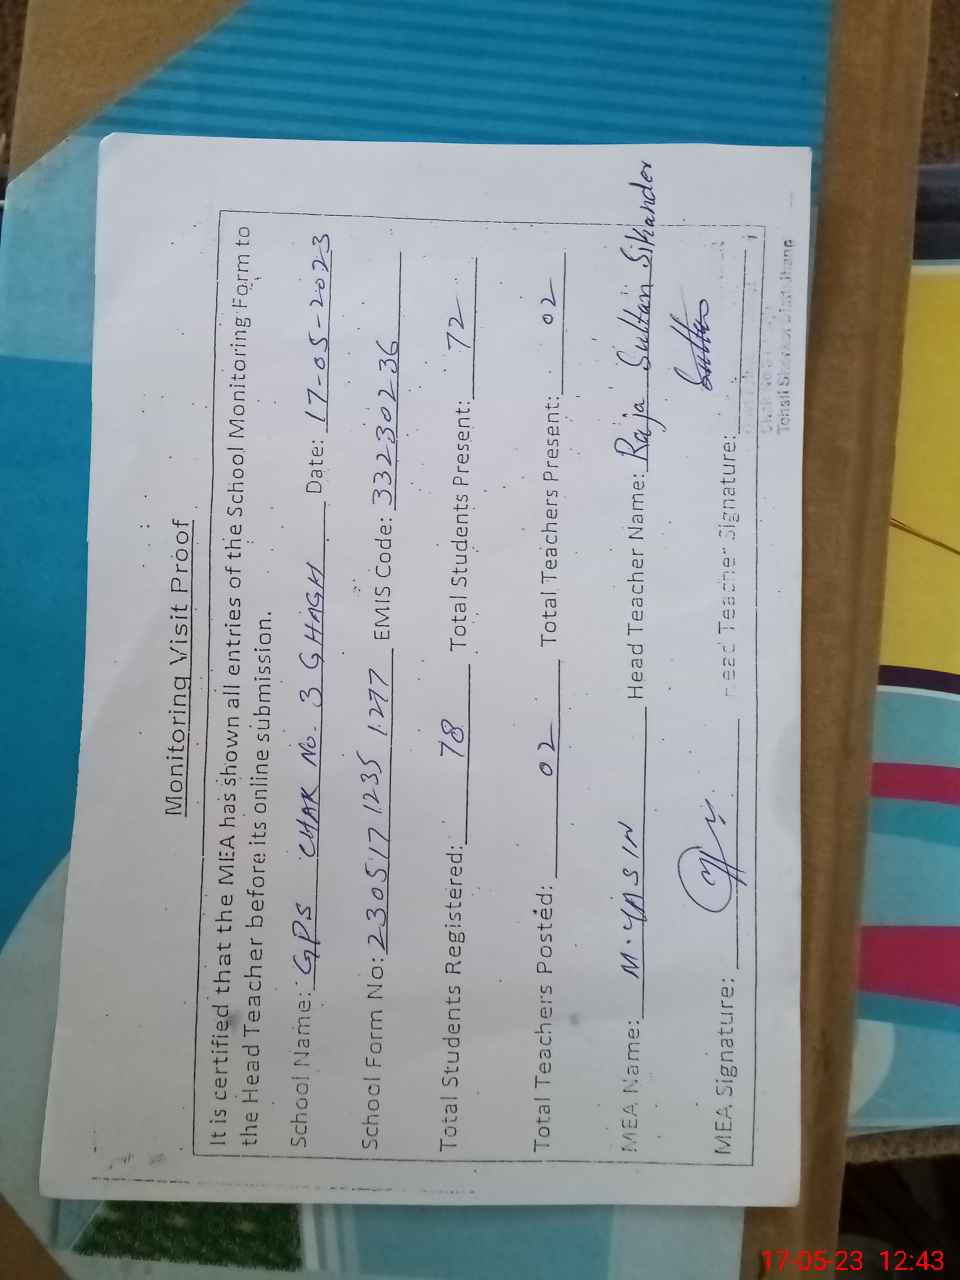 Monitoring Visit Proof
It is certified that the MEA has shown all entries of the School Monitoring Form to
the Head Teacher before its online submission.
School Name: GPS CHAK No. 3 GHAGH Date: 17-05-2023
School Form No: 230517 1235 1277 EMIS Code: 33230236
Total Students Registered: 78 Total Students Present: 72
Total Teachers Posted: 02 Total Teachers Present: 02
MEA Name: M. YASIN Head Teacher Name: Raja Sultan Sikander
MEA Signature: Head Teacher Signature:
17-05-23 12:43